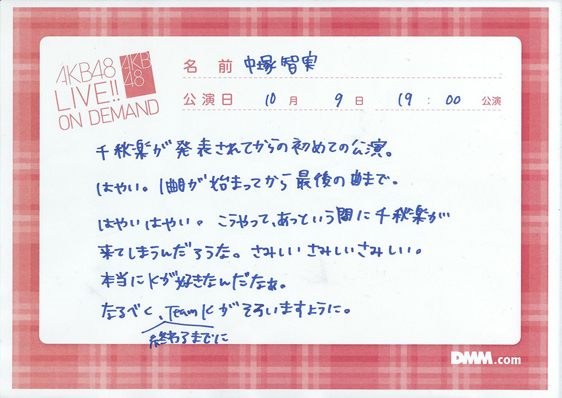 AKB48
LIVE!!
ON DEMAND
AKB
48
名前 中塚智実
公演日 10月 9日 19:00 公演
千秋楽が発表されてからの初めての公演。
はやい。1曲目が始まってから最後の曲まで。
はやいはやい。こうやって、あっという間に千秋楽が
来てしまうんだろうな。さみしいさみしいさみしい。
本当にKが好きなんだなぁ。
なるべく、Team Kがそろいますように。
終わるまでに
DMM.com